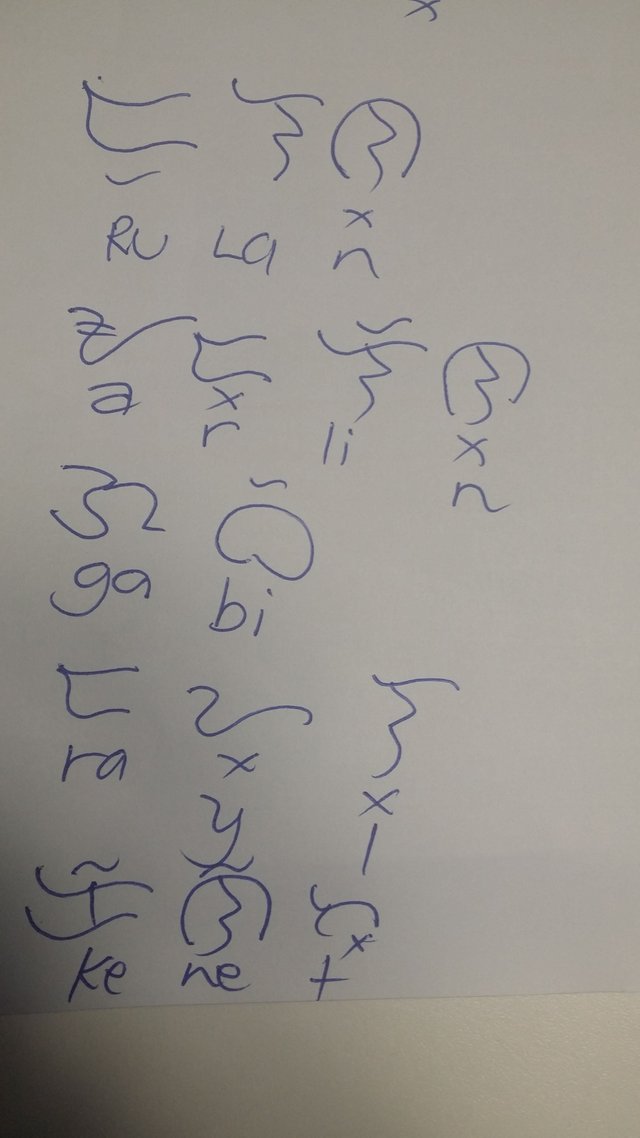 ᜇᜓ ᜎ ᜈ᜔
Ru La n
ᜀ ᜇ᜔ ᜎᜒ ᜈ᜔
a r li n
ᜄ ᜊᜒ
ga bi
ᜇ ᜌ᜔ ᜎ᜔
ra y l
ᜃᜒ ᜈᜒ ᜆ᜔
ke ne t